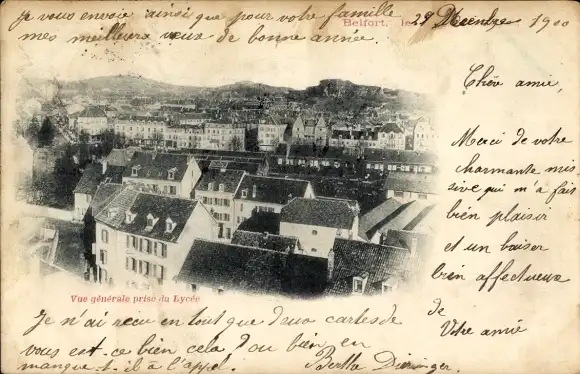 je vous envoie ainsi que pour votre famille
Belfort, le 29 Décembre 1900
mes meilleurs vœux de bonne année.
Chère amie,
Merci de votre
charmante mis
sive qui m'a fait
bien plaisir
et un baiser
bien affectueux
de
Votre amie
Bertha
Vue générale prise du Lycée
Je n'ai reçu en tout que deux cartes de
vous est-ce bien cela? ou bien en
manque-t-il à l'appel.